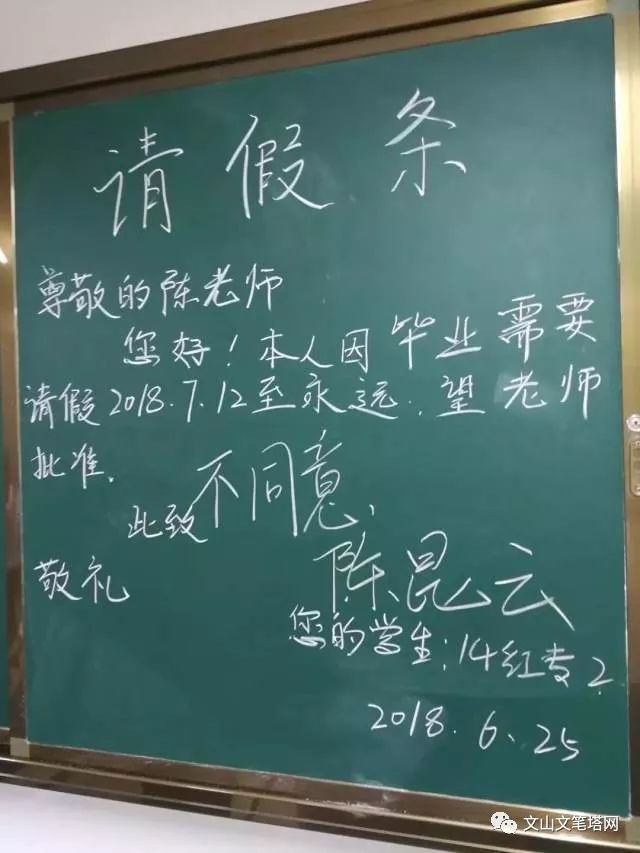 请假条
尊敬的陈老师
您好！本人因毕业需要
请假2018.7.12至永远.望老师
批准.
此致
不同意、
敬礼
陈昆云
您的学生:14红专2
2018.6.25
文山文笔塔网